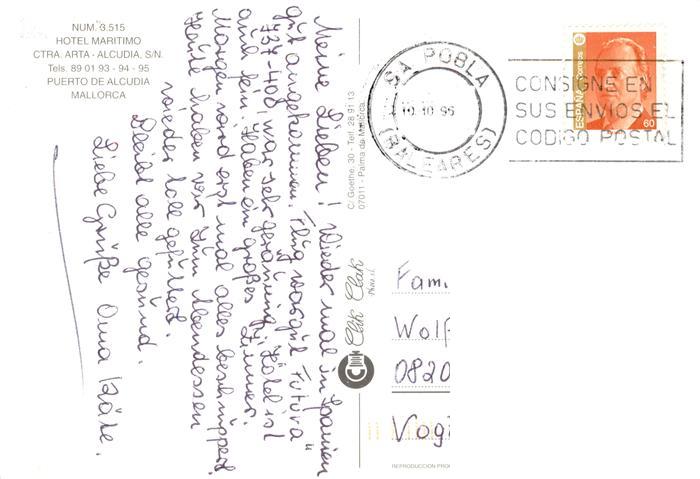 NUM. 3.515
HOTEL MARITIMO
CTRA. ARTA - ALCUDIA, S/N.
Tels. 89 01 93 - 94 - 95
PUERTO DE ALCUDIA
MALLORCA
Meine Lieben! Wieder mal in Spanien
gut angekommen. Flug war gut "Futura
737-400, war sehr geräumig." Hotel ist
auch fein. Haben ein großes Zimmer.
Morgen wird erst mal alles beschnuppert
Heute haben wir zum Abendessen
wieder toll gefuttert.
Bleibt alle gesund.
Liebe Grüße Oma Käte.
C/ Goethe, 30 - Telf. 28 91 13
07011 - Palma de Mallorca
Clik Clak
SA POBLA
10 10 96
(BALEARES)
CONSIGNE EN
SUS ENVIOS EL
CODIGO POSTAL
ESPAÑA
Correos
60
Fam.
Wolf
0820
Vogt
REPRODUCCION PROH